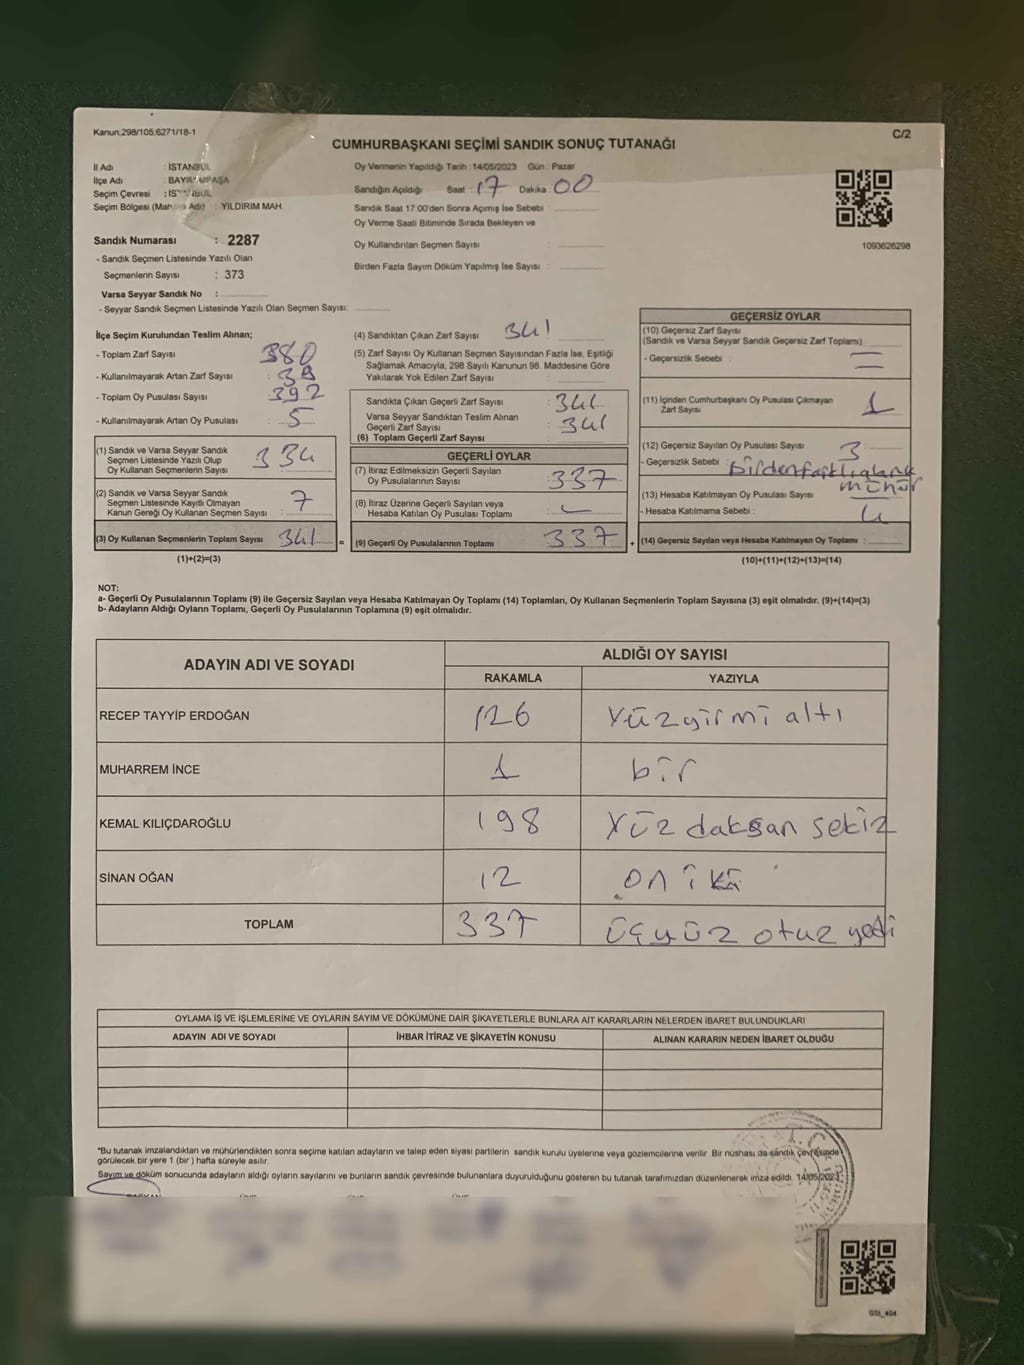 Kanun;298/105;6271/18-1
C/2
CUMHURBAŞKANI SEÇİMİ SANDIK SONUÇ TUTANAĞI
İl Adı : İSTANBUL
İlçe Adı
Seçim Çevresi
Seçim Bölgesi : YILDIRIM MAH.
Sandık Numarası : 2287
- Sandık Seçmen Listesinde Yazılı Olan
Seçmenlerin Sayısı : 373
Varsa Seyyar Sandık No :
- Seyyar Sandık Seçmen Listesinde Yazılı Olan Seçmen Sayısı:
Oy Vermenin Yapıldığı Tarih :14/05/2023 Gün : Pazar
Sandığın Açıldığı Saat : 17 Dakika 00
Sandık Saat 17:00'den Sonra Açımış İse Sebebi :
Oy Verme Saati Bitiminde Sırada Bekleyen ve
Oy Kullandırılan Seçmen Sayısı :
Birden Fazla Sayım Döküm Yapılmış İse Sayısı :
1093626298
İlçe Seçim Kurulundan Teslim Alınan;
- Toplam Zarf Sayısı : 380
- Kullanılmayarak Artan Zarf Sayısı :
- Toplam Oy Pusulası Sayısı : 392
- Kullanılmayarak Artan Oy Pusulası : 5
(1) Sandık ve Varsa Seyyar Sandık
Seçmen Listesinde Yazılı Olup
Oy Kullanan Seçmenlerin Sayısı : 334
(2) Sandık ve Varsa Seyyar Sandık
Seçmen Listesinde Kayıtlı Olmayan
Kanun Gereği Oy Kullanan Seçmen Sayısı : 7
(3) Oy Kullanan Seçmenlerin Toplam Sayısı : 341
(1)+(2)=(3)
(4) Sandıktan Çıkan Zarf Sayısı : 341
(5) Zarf Sayısı Oy Kullanan Seçmen Sayısından Fazla İse, Eşitliği
Sağlamak Amacıyla, 298 Sayılı Kanunun 98. Maddesine Göre
Yakılarak Yok Edilen Zarf Sayısı :
Sandıkta Çıkan Geçerli Zarf Sayısı : 341
Varsa Seyyar Sandıktan Teslim Alınan
Geçerli Zarf Sayısı : 341
(6) Toplam Geçerli Zarf Sayısı :
GEÇERLİ OYLAR
(7) İtiraz Edilmeksizin Geçerli Sayılan
Oy Pusulalarının Sayısı : 337
(8) İtiraz Üzerine Geçerli Sayılan veya
Hesaba Katılan Oy Pusulası Toplamı :
= (9) Geçerli Oy Pusulalarının Toplamı : 337
GEÇERSİZ OYLAR
(10) Geçersiz Zarf Sayısı
(Sandık ve Varsa Seyyar Sandık Geçersiz Zarf Toplamı)
- Geçersizlik Sebebi :
(11) İçinden Cumhurbaşkanı Oy Pusulası Çıkmayan
Zarf Sayısı 1
(12) Geçersiz Sayılan Oy Pusulası Sayısı : 3
- Geçersizlik Sebebi :
mühür
(13) Hesaba Katılmayan Oy Pusulası Sayısı
- Hesaba Katılmama Sebebi : 4
+ (14) Geçersiz Sayılan veya Hesaba Katılmayan Oy Toplamı :
(10)+(11)+(12)+(13)=(14)
NOT:
a- Geçerli Oy Pusulalarının Toplamı (9) ile Geçersiz Sayılan veya Hesaba Katılmayan Oy Toplamı (14) Toplamları, Oy Kullanan Seçmenlerin Toplam Sayısına (3) eşit olmalıdır. (9)+(14)=(3)
b- Adayların Aldığı Oyların Toplamı, Geçerli Oy Pusulalarının Toplamına (9) eşit olmalıdır.
ADAYIN ADI VE SOYADI
ALDIĞI OY SAYISI
RAKAMLA YAZIYLA
RECEP TAYYİP ERDOĞAN 126 Yüzyirmi altı
MUHARREM İNCE 1 bir
KEMAL KILIÇDAROĞLU 198 Yüz daksan sekiz
SİNAN OĞAN 12 on iki
TOPLAM 337 üçyüz otuz yedi
OYLAMA İŞ VE İŞLEMLERİNE VE OYLARIN SAYIM VE DÖKÜMÜNE DAİR ŞİKAYETLERLE BUNLARA AİT KARARLARIN NELERDEN İBARET BULUNDUKLARI
ADAYIN ADI VE SOYADI İHBAR İTİRAZ VE ŞİKAYETİN KONUSU ALINAN KARARIN NEDEN İBARET OLDUĞU
*Bu tutanak imzalandıktan ve mühürlendikten sonra seçime katılan adayların ve talep eden siyasi partilerin sandık kurulu üyelerine veya gözlemcilerine verilir. Bir nüshası da sandık çevresinde
görülecek bir yere 1 (bir) hafta süreyle asılır.
Sayım ve döküm sonucunda adayların aldığı oyların sayılarını ve bunların sandık çevresinde bulunanlara duyurulduğunu gösteren bu tutanak tarafımızdan düzenlenerek imza edildi. 14/05/2023
T.C.
GSI_404